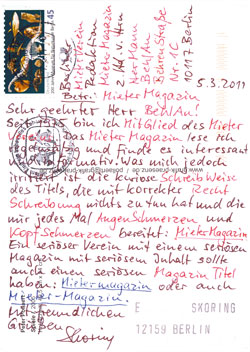 45
Berliner
Mieterverein
Redaktion
Mieter Magazin
Behrenstraße
Nr. 1C
10117 Berlin
5.3.2011
Betr.: MieterMagazin
Sehr geehrter Herr
Seit 1975 bin ich Mitglied des Mieter
Vereins. Das MieterMagazin lese ich
regelmäßig und finde es interessant
und informativ. Was mich jedoch
irritiert ist die kuriose SchreibWeise
des Titels, die mit korrekter Recht
Schreibung nichts zu tun hat und die
mir jedes Mal AugenSchmerzen und
KopfSchmerzen bereitet: MieterMagazin
Ein seriöser Verein mit einem seriösen
Magazin mit seriösem Inhalt sollte
auch einen seriösen Magazin Titel
haben: Mietermagazin oder auch
Mieter-Magazin.
Mit freundlichen
Grüßen
Skoring
E SKORING
12159 BERLIN